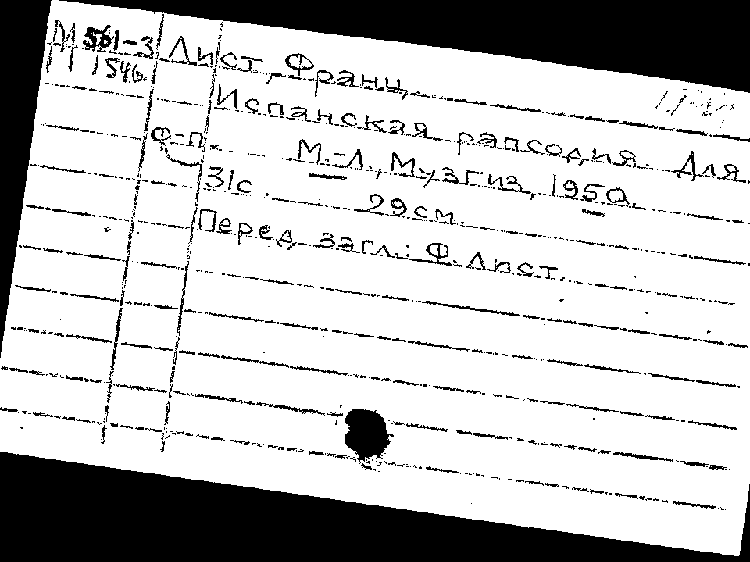 М 561-3
1546
Лист, Франц.
Испанская рапсодия. Для
ф-п. М.-Л., Музгиз, 1950.
31с. 29см.
Перед загл.: Ф. Лист.